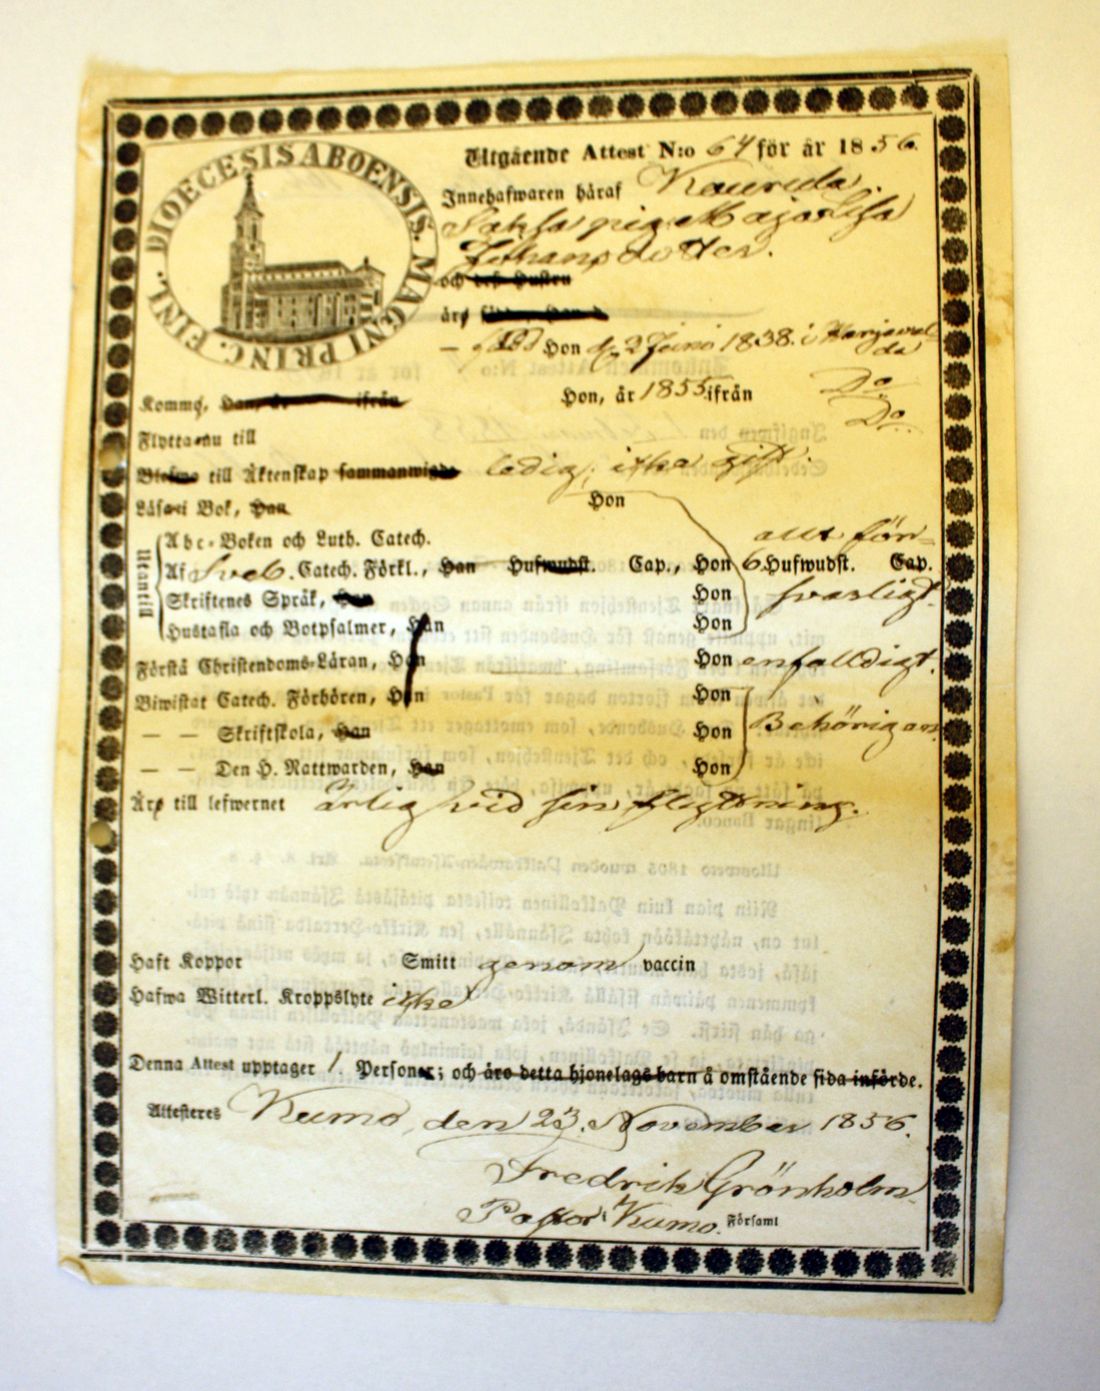 DIOECESIS ABOENSIS. MAGNI PRINC. FINL.
Utgående Attest N:o 64 för år 1856.
Innehafwaren häraf Kaurula
Saksa pig. Maja Lisa
Johansdotter.
och dess Hustru
äro
född Hon d. 2 Junii 1838. i Harjavalda
Kommo, Han, år ifrån Hon, år 1855 ifrån Do
Flytta nu till Do
till Äktenskap sammanwigde ledig, icke gift.
Läsa i Bok, Han Hon
Utantill
Abc-Boken och Luth. Catech. allt förswarligt.
Af Sveb. Catech. Förkl., Han Hufwudst. Cap., Hon 6 Hufwudst. Cap.
Skriftenes Språk, Han Hon
Hustafla och Botpsalmer, Han Hon
Förstå Christendoms-Läran, Han Hon enfalldigt.
Biwistat Catech. Förhören, Han Hon
— — Skriftskola, Han Hon Behörigen
— — Den H. Nattwarden, Han Hon
Äro till lefwernet Ärlig vid sin flyttning.
Haft Koppor Smitt genom vaccin
Hafwa Witterl. Kroppslyte icke
Denna Attest upptager 1. Personer; och äro detta hjonelags barn å omstående sida införde.
Attesteres Kumo, den 23. November 1856.
Fredrik Grönholm
Pastor i Kumo. Församl